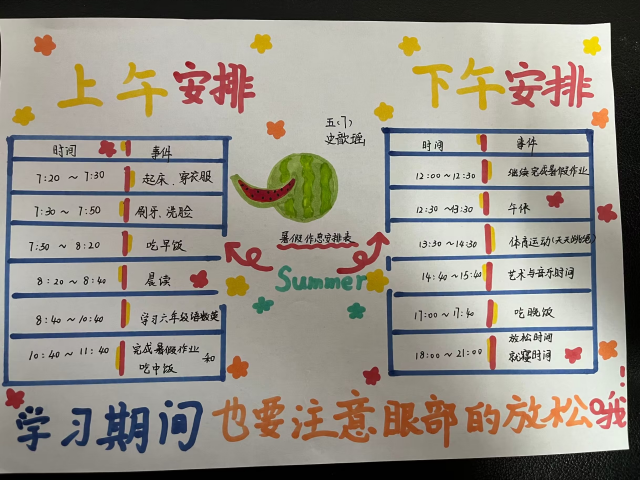 上午安排
下午安排
五(7)
史歆瑶
时间 事件
7:20 ~ 7:30 起床、穿衣服
7:30 ~ 7:50 刷牙、洗脸
7:50 ~ 8:20 吃早饭
8:20 ~ 8:40 晨读
8:40 ~ 10:40 学习六年级语数英
10:40 ~ 11:40 完成暑假作业和
吃中饭
暑假作息安排表
Summer
时间 事件
12:00 ~ 12:30 继续完成暑假作业
12:30 ~ 13:30 午休
13:30 ~ 14:30 体育运动(天天跳绳)
14:40 ~ 15:40 艺术与音乐时间
17:00 ~ 17:40 吃晚饭
18:00 ~ 21:00 放松时间
就寝时间
学习期间也要注意眼部的放松哦!